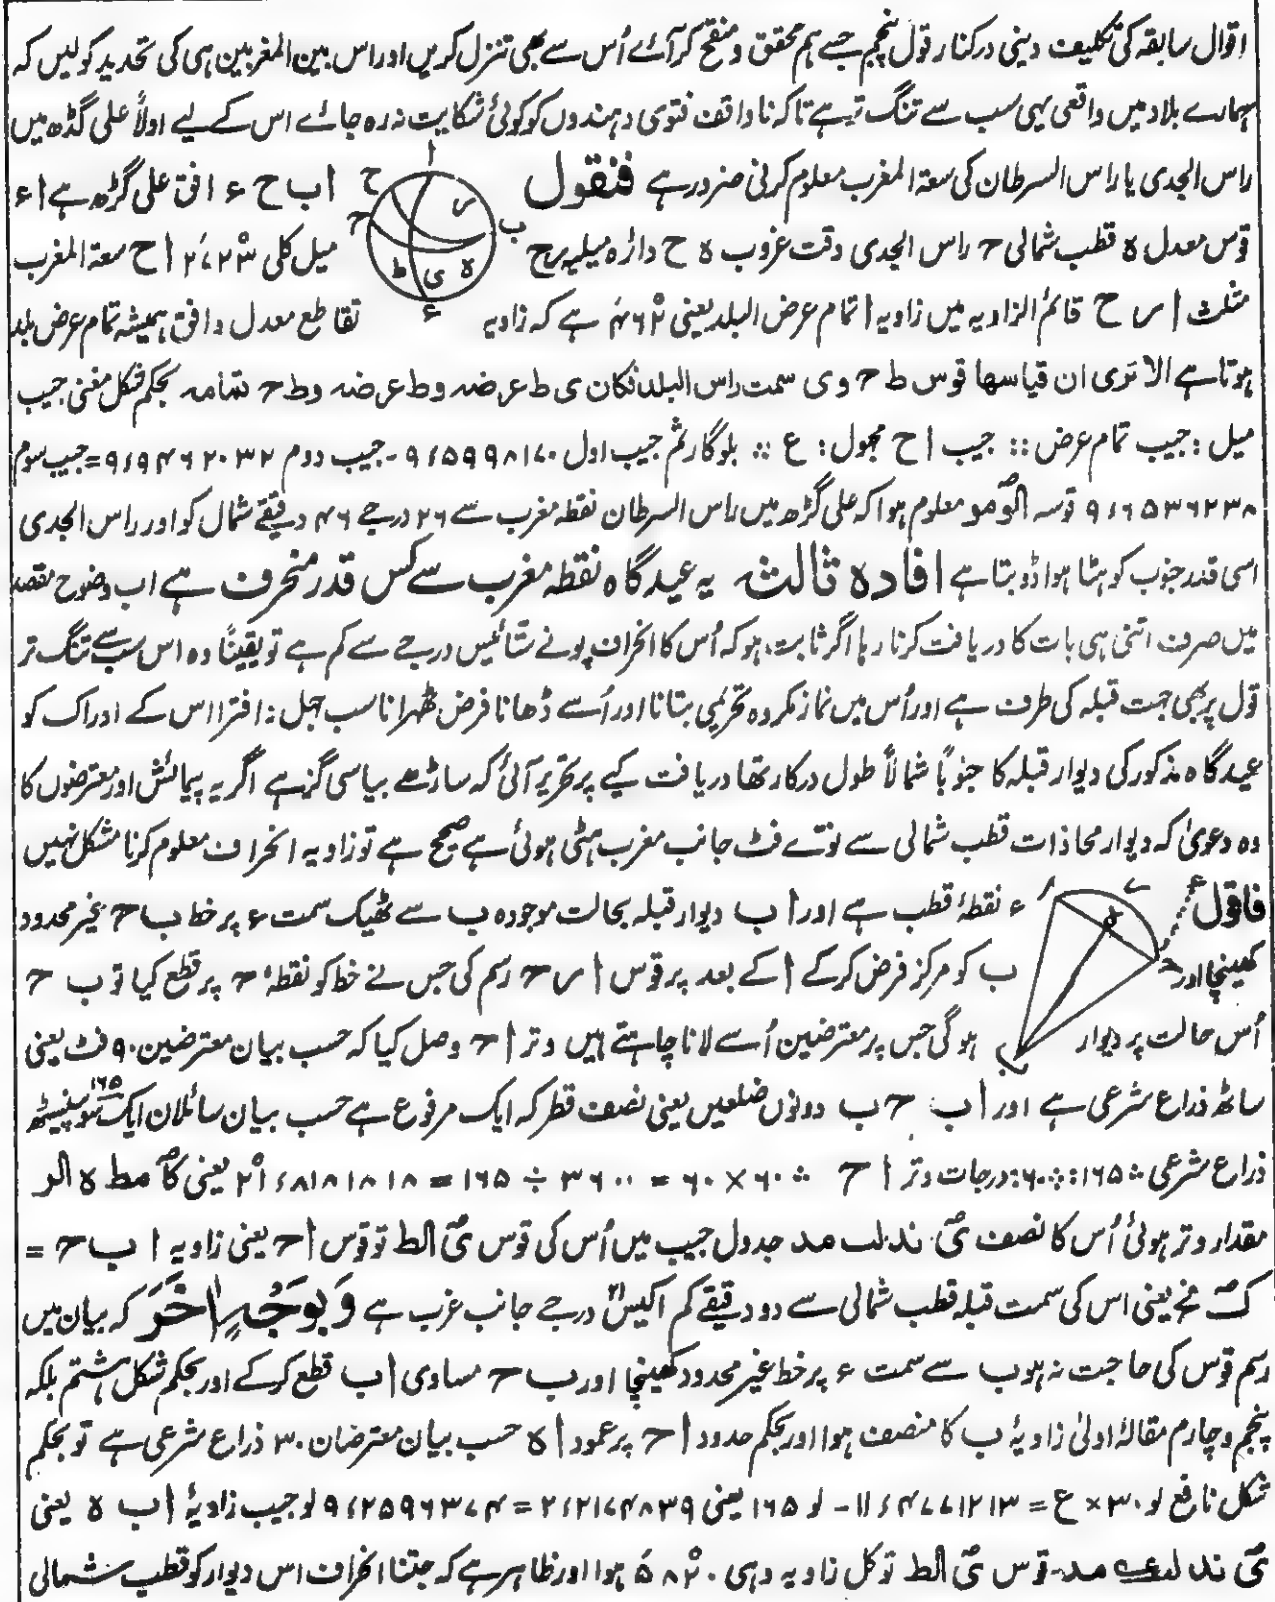 اقوال سابقہ کی تکلیف دینی درکنار قول پنجم جسے ہم محقق و منقح کر آئے اُس سے بھی تنزل کریں اور اس بین المغربین ہی کی تحدید کو لیں کہ
ہمارے بلاد میں واقعی یہی سب سے تنگ تر ہے تاکہ ناواقف فتوی دہندوں کو کوئی شکایت نہ رہ جائے اس کے لیے اولاً علی گڈھ میں
راس الجدی یا راس السرطان کی سعۃ المغرب معلوم کرنی ضرور ہے فنقول ا ب ح ء افق علی گڑھ ہے ا ء
قوس معدل ہ قطب شمالی ح راس الجدی وقت غروب ہ ح دائرہ میلیہ ر ح میل کلی ۲۳° ۲۷َ ا ح سعۃ المغرب
مثلث ا ر ح قائم الزاویہ میں زاویہ ا تمام عرض البلد یعنی ۶۲° ۴َ ہے کہ زاویہ تقاطع معدل و افق ہمیشہ تمام عرض بلد
ہوتا ہے الا تری ان قیاسھا قوس ط ح و ی سمت راس البلد فکان ی ط عرضہ و ط ء عرضہ و ط ح تمامہ بحکم شکل مغنی جیب
میل : جیب تمام عرض :: جیب ا ح مجہول : ع ∴ بلوگارثم جیب اول ۹ء۵۹۹۸۱۷۰ - جیب دوم ۹ء۹۴۶۲۰۳۲ = جیب سوم
۹ء۶۵۳۶۲۳۸ قوسہ الوٗمو معلوم ہوا کہ علی گڑھ میں راس السرطان نقطہ مغرب سے ۲۶ درجے ۴۶ دقیقے شمال کو اور راس الجدی
اسی قدر جنوب کو ہٹا ہوا ڈوبتا ہے افادہ ثالث یہ عیدگاہ نقطہ مغرب سے کس قدر منحرف ہے اب وضوح مقصد
میں صرف اتنی ہی بات کا دریافت کرنا رہا اگر ثابت ہو کہ اُس کا انحراف پونے ستائیس درجے سے کم ہے تو یقیناً وہ اس سب سے تنگ تر
قول پر بھی جہت قبلہ کی طرف ہے اور اُس میں نماز مکروہ تحریمی بتانا اور اُسے ڈھانا فرض ٹھہرانا سب جہل و افترا اس کے ادراک کو
عیدگاہ مذکور کی دیوار قبلہ کا جنوباً شمالاً طول درکار تھا دریافت کیے پر تحریر آئی کہ ساڑھے بیاسی گز ہے اگر یہ پیمائش اور معترضوں کا
وہ دعویٰ کہ دیوار محاذات قطب شمالی سے نوّے فٹ جانب مغرب ہٹی ہوئی ہے صحیح ہے تو زاویہ انحراف معلوم کرنا مشکل نہیں
فاقول ء نقطۂ قطب ہے اور ا ب دیوار قبلہ بحالت موجودہ ب سے ٹھیک سمت ء پر خط ب ح غیر محدود
کھینچا اور ب کو مرکز فرض کرکے ا کے بعد پر قوس ا ر ح رسم کی جس نے خط کو نقطہ ح پر قطع کیا تو ب ح
اُس حالت پر دیوار ہوگی جس پر معترضین اُسے لانا چاہتے ہیں وتر ا ح وصل کیا کہ حسب بیان معترضین ۹۰ فٹ یعنی
ساٹھ ذراع شرعی ہے اور ا ب ح ب دونوں ضلعیں یعنی نصف قطر کہ ایک مرفوع ہے حسب بیان سائلان ایک سو پینسٹھ ۱۶۵
ذراع شرعی ∴ ۱۶۵ : ۶۰ :: ۶۰ : درجات وتر ا ح ∴ ۶۰ × ۶۰ = ۳۶۰۰ ÷ ۱۶۵ = ۲۱ء۸۱۸۱۸۱۸ یعنی کاٗ مط ہ الر
مقدار وتر ہوئی اُس کا نصف یٗ ند لب مد جدول جیب میں اُس کی قوس یٗ الط تو قوس ا ح یعنی زاویہ ا ب ح =
کٗ نح یعنی اس کی سمت قبلہ قطب شمالی سے دو دقیقے کم اکیس ۲۱ درجے جانب غرب ہے وَبِوَجْہٍ اٰخَرَ کہ بیان میں
رسم قوس کی حاجت نہ ہو ب سے سمت ء پر خط غیر محدود کھینچا اور ب ح مساوی ا ب قطع کرکے اور بحکم شکل ہشتم بلکہ
پنجم و چارم مقالۂ اولیٰ زاویۂ ب کا منصف ہوا اور بحکم حدود ا ح پر عمود ا ہ حسب بیان معترضان ۳۰ ذراع شرعی ہے تو بحکم
شکل نافع لو ۳۰ × ع = ۱۱ء۴۷۷۱۲۱۳ - لو ۱۶۵ یعنی ۲ء۲۱۷۴۸۳۹ = ۹ء۲۵۹۶۳۷۴ لو جیب زاویۂ ا ب ہ یعنی
یٗ ند لب مد - قوس یٗ الط تو کل زاویہ وہی ۲۰° ۵۸َ ہوا اور ظاہر ہے کہ جتنا انحراف اس دیوار کو قطب شمالی